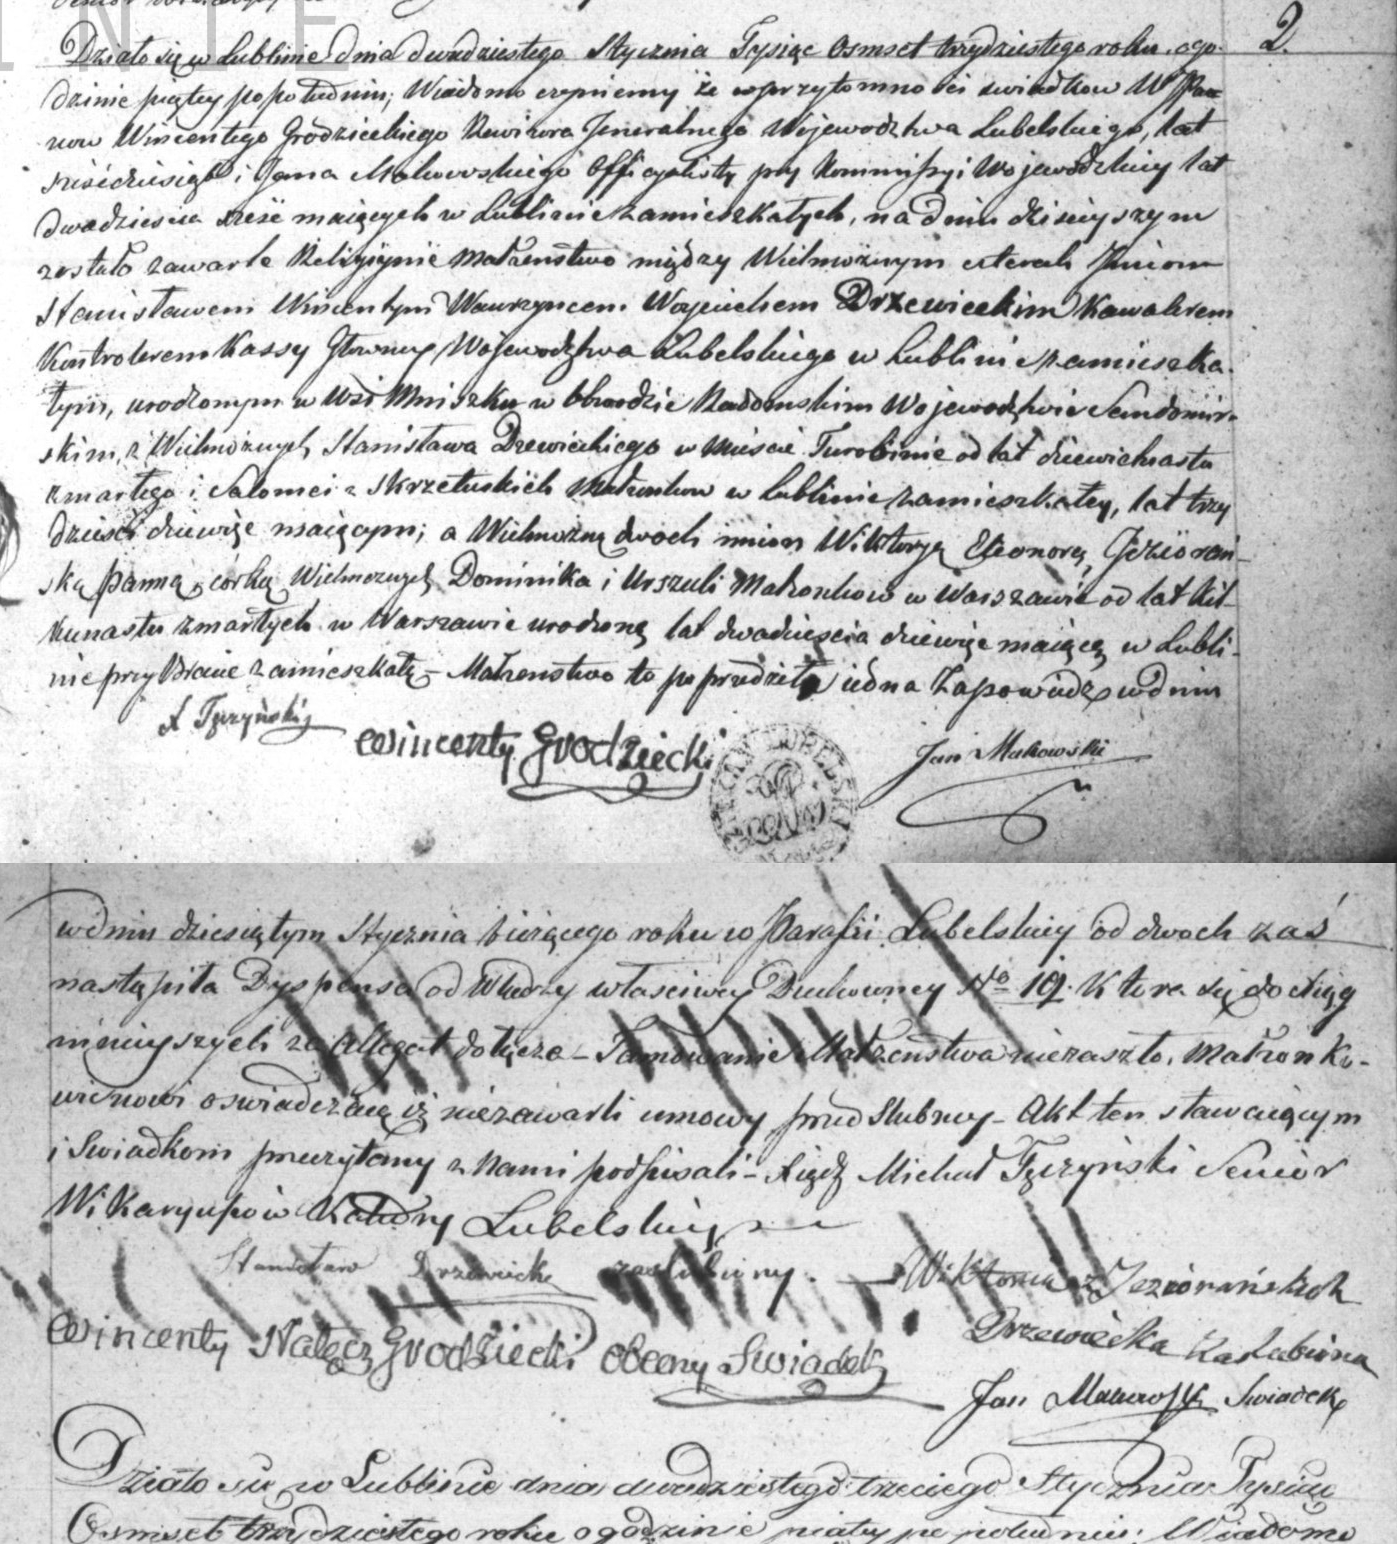 Działo się w Lublinie dnia dwudziestego Stycznia Tysiąc Osmset trzydziestego roku, ogo- 2.
dzinie piątey popołudniu; Wiadomo czyniemy że wprzytomności świadkow W Pa
now Wincentego Grodzieckiego Rewizora Jeneralnego Wojewodztwa Lubelskiego, lat
sześćdziesiąt i Jana Makowskiego Officyalisty przy Kommissyi Wojewodzkiey lat
dwadzieścia sześć maiących w Lublinie zamieszkałych, na dniu dzisieyszym
zostało zawarte Religiynie Małżenstwo między Wielmożnym czterech Jmion
Stanisławem Wincentym Wawrzyncem Woyciechem Drzewieckim Kawalerem
Kontrolerem Kassy Głowney Wojewodztwa Lubelskiego w Lublinie zamieszka-
łym, urodzonym w Wsi Mniszku w Obwodzie Radomskim Wojewodztwie Sandomir-
skim, z Wielmożnych Stanisława Drzewieckiego w Mieście Turobinie od lat dziewietnastu
zmarłego i Salomei z Skrzetuskich Małżonkow w Lublinie zamieszkałey, lat trzy
dzieści dziewięć maiącym; a Wielmożną dwoch imion Wiktoryą Eleonorą Jeziorań-
ską Panną, córką Wielmożnych Dominika i Urszuli Małżonkow w Warszawie od lat kil-
kunastu zmarłych w Warszawie urodzoną lat dwadzieścia dziewięć maiącą w Lubli-
nie przy Bracie zamieszkałą – Małżenstwo to poprzedziła iedna Zapowiedź w dniu
Tyczyński
Wincenty Grodziecki
Jan Makowski
w dniu dziesiątym Stycznia bieżącego roku w Parafii Lubelskiey od dwoch zaś
nastąpiła Dyspensa od Władzy właściwey Duchowney No 19. Ktora się do Xiąg
ninieyszych za Allegat dołącza – Tamowanie Małżeństwa niezaszło. Małżonko-
wie nowi oswiadczaią iż niezawarli umowy przed Slubney – Akt ten stawaiącym
i Swiadkom przeczytany z Nami podpisali – Xiądz Michał Tyczyński Senior
Wikaryuszów Katedry Lubelskiey
Stanisław Drzewiecki zaslubiony. – Wiktoria z Jeziorańskich
Drzewiecka Zaslubiona
Wincenty Nałęcz Grodziecki Obecny Swiadek
Jan Makowski Swiadek
Działo się w Lublinie dnia dwudziestego trzeciego Stycznia Tysiąc
Osmset trzydziestego roku o godzinie piątey po południu; Wiadomo